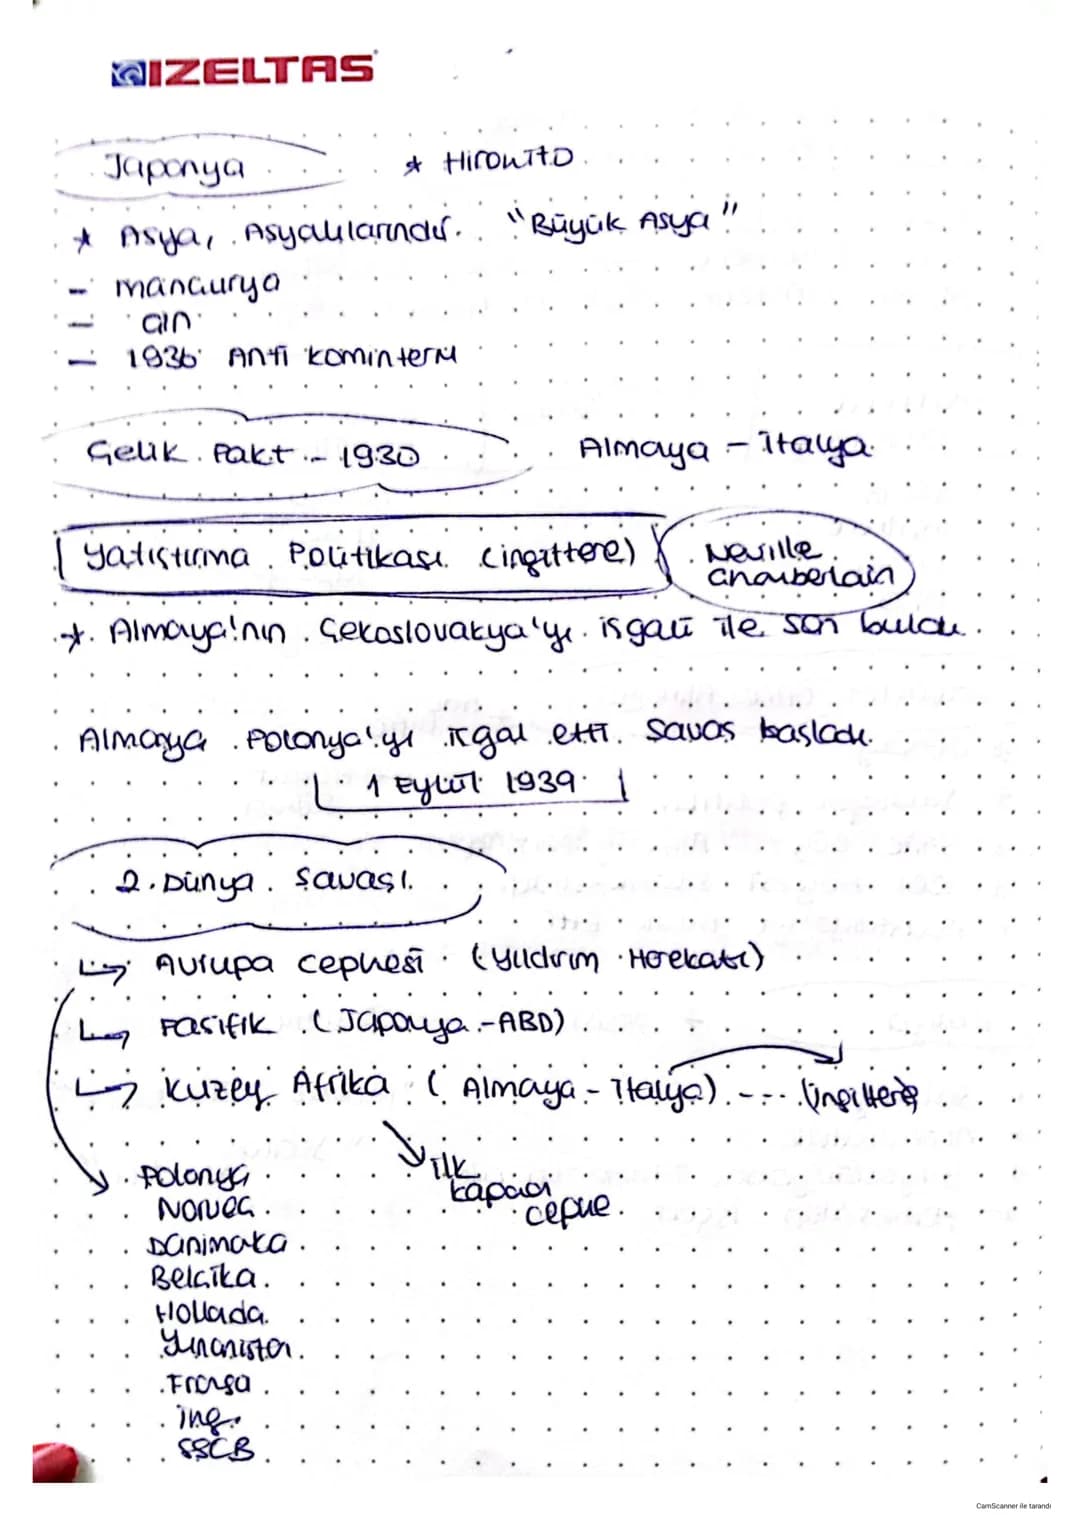 IZELTAS
Japonya * HiroHiTO
* Asya, Asyalılarındır. "Büyük Asya"
- mançurya
- çin
- 1936 Anti komintern
Çelik Pakt - 1930 Almaya - İtalya
Yatıştırma Politikası (ingiltere) Neville
Chamberlain
* Almaya'nın Çekoslovakya'yı işgali ile son buldu.
Almaya Polonya'yı işgal etti. Savaş başladı.
1 Eylül 1939
2. Dünya Savaşı
↳ Avrupa cephesi (Yıldırım Harekatı)
↳ Pasifik (Japonya - ABD)
↳ Kuzey Afrika (Almaya - İtalya) --- (ingiltere)
Polonya
ilk
kapanan
cephe.
Norveç
Danimaka
Belçika.
Hollada.
Yunanistan.
Fransa
ing.
SSCB
CamScanner ile tarandı